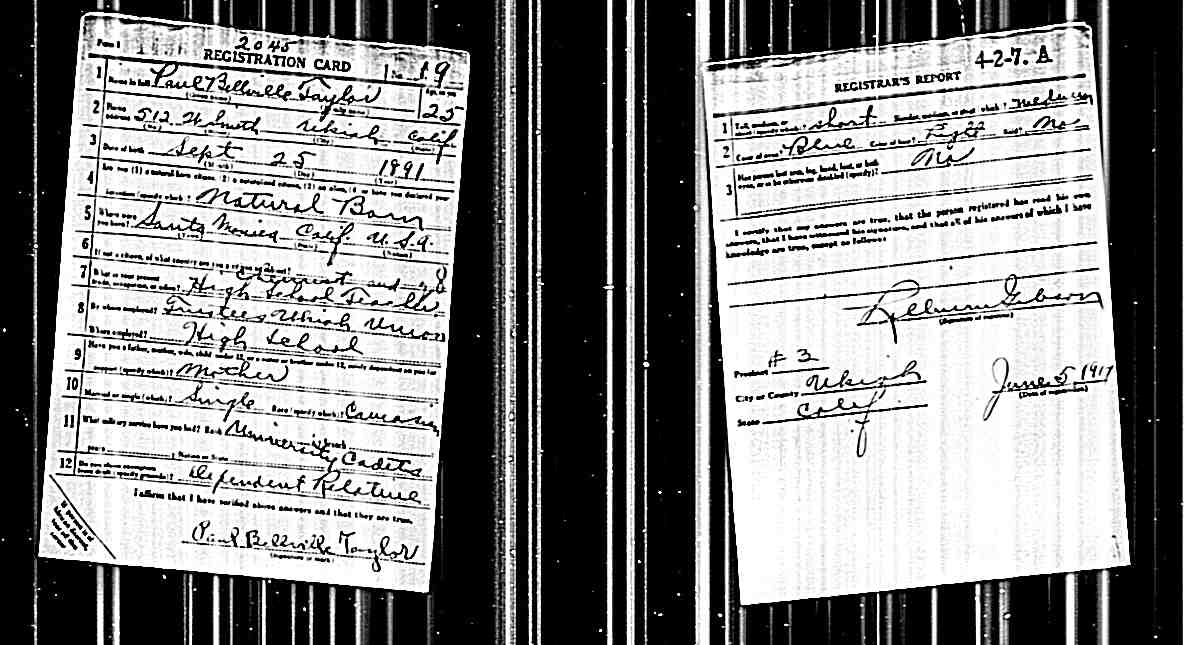 Form 1
2045
REGISTRATION CARD
No. 19
1 Name in full Paul Bellville Taylor
Age, in yrs.
25
(Given name) (Family name)
2 Home address 512 W Smith Ukiah Calif
(No.) (City) (State)
3 Date of birth Sept 25 1891
(Month) (Day) (Year)
4 Are you (1) a natural-born citizen, (2) a naturalized citizen, (3) an alien, (4) or have you declared your
intention (specify which)? Natural Born
5 Where were you born? Santa Monica Calif. U.S.A.
(Town) (State) (Nation)
6 If not a citizen, of what country are you a citizen or subject?
7 What is your present trade, occupation, or office? Chemist and
High School Teacher
8 By whom employed? Trustees Ukiah Union
Where employed? High School
9 Have you a father, mother, wife, child under 12, or a sister or brother under 12, solely dependent on you for
support (specify which)? Mother
10 Married or single (which)? Single Race (specify which)? Caucasian
11 What military service have you had? Rank University Cadets branch
years Nation or State
12 Do you claim exemption from draft (specify grounds)? Dependent Relative
I affirm that I have verified above answers and that they are true.
Paul Bellville Taylor
(Signature or mark)
4-2-7. A
REGISTRAR'S REPORT
1 Tall, medium, or short (specify which)? Short Slender, medium, or stout (which)? Medium
2 Color of eyes? Blue Color of hair? Light Bald? No
3 Has person lost arm, leg, hand, foot, or both
eyes, or is he otherwise disabled (specify)? No
I certify that my answers are true, that the person registered has read his own
answers, that I have witnessed his signature, and that all of his answers of which I have
knowledge are true, except as follows:
Gibson
(Signature of registrar)
Precinct # 3
City or County Ukiah
State Calif
June 5, 1917
(Date of registration)